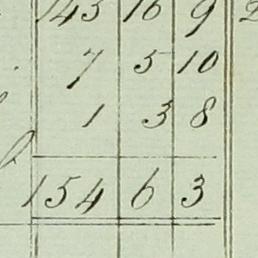 145 16 9
7 5 10
1 3 8
154 6 3